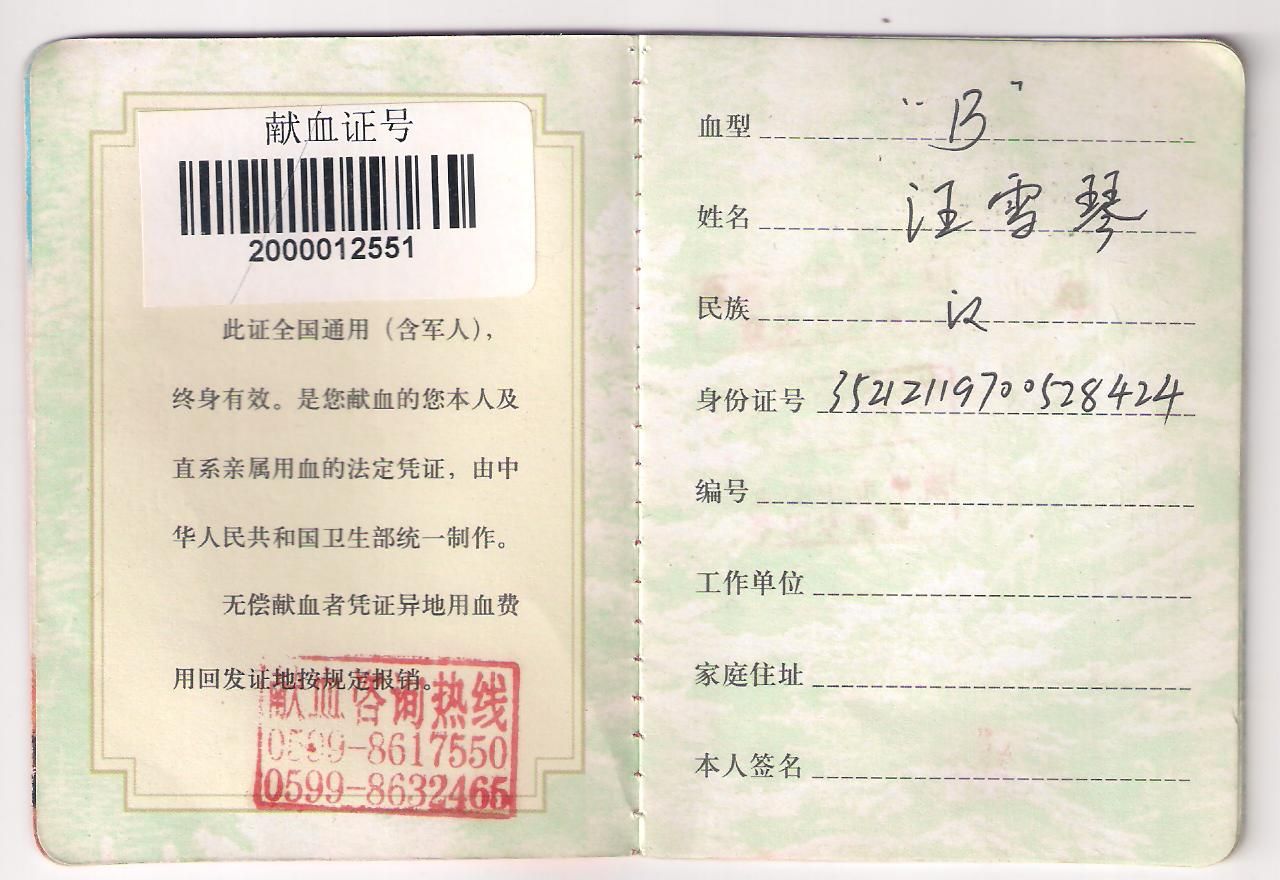 献血证号
2000012551
此证全国通用（含军人），
终身有效。是您献血的您本人及
直系亲属用血的法定凭证，由中
华人民共和国卫生部统一制作。
无偿献血者凭证异地用血费
用回发证地按规定报销。
献血咨询热线
0599-8617550
0599-8632465
血型 "B"
姓名 汪雪琴
民族 汉
身份证号 35212119700528424
编号
工作单位
家庭住址
本人签名